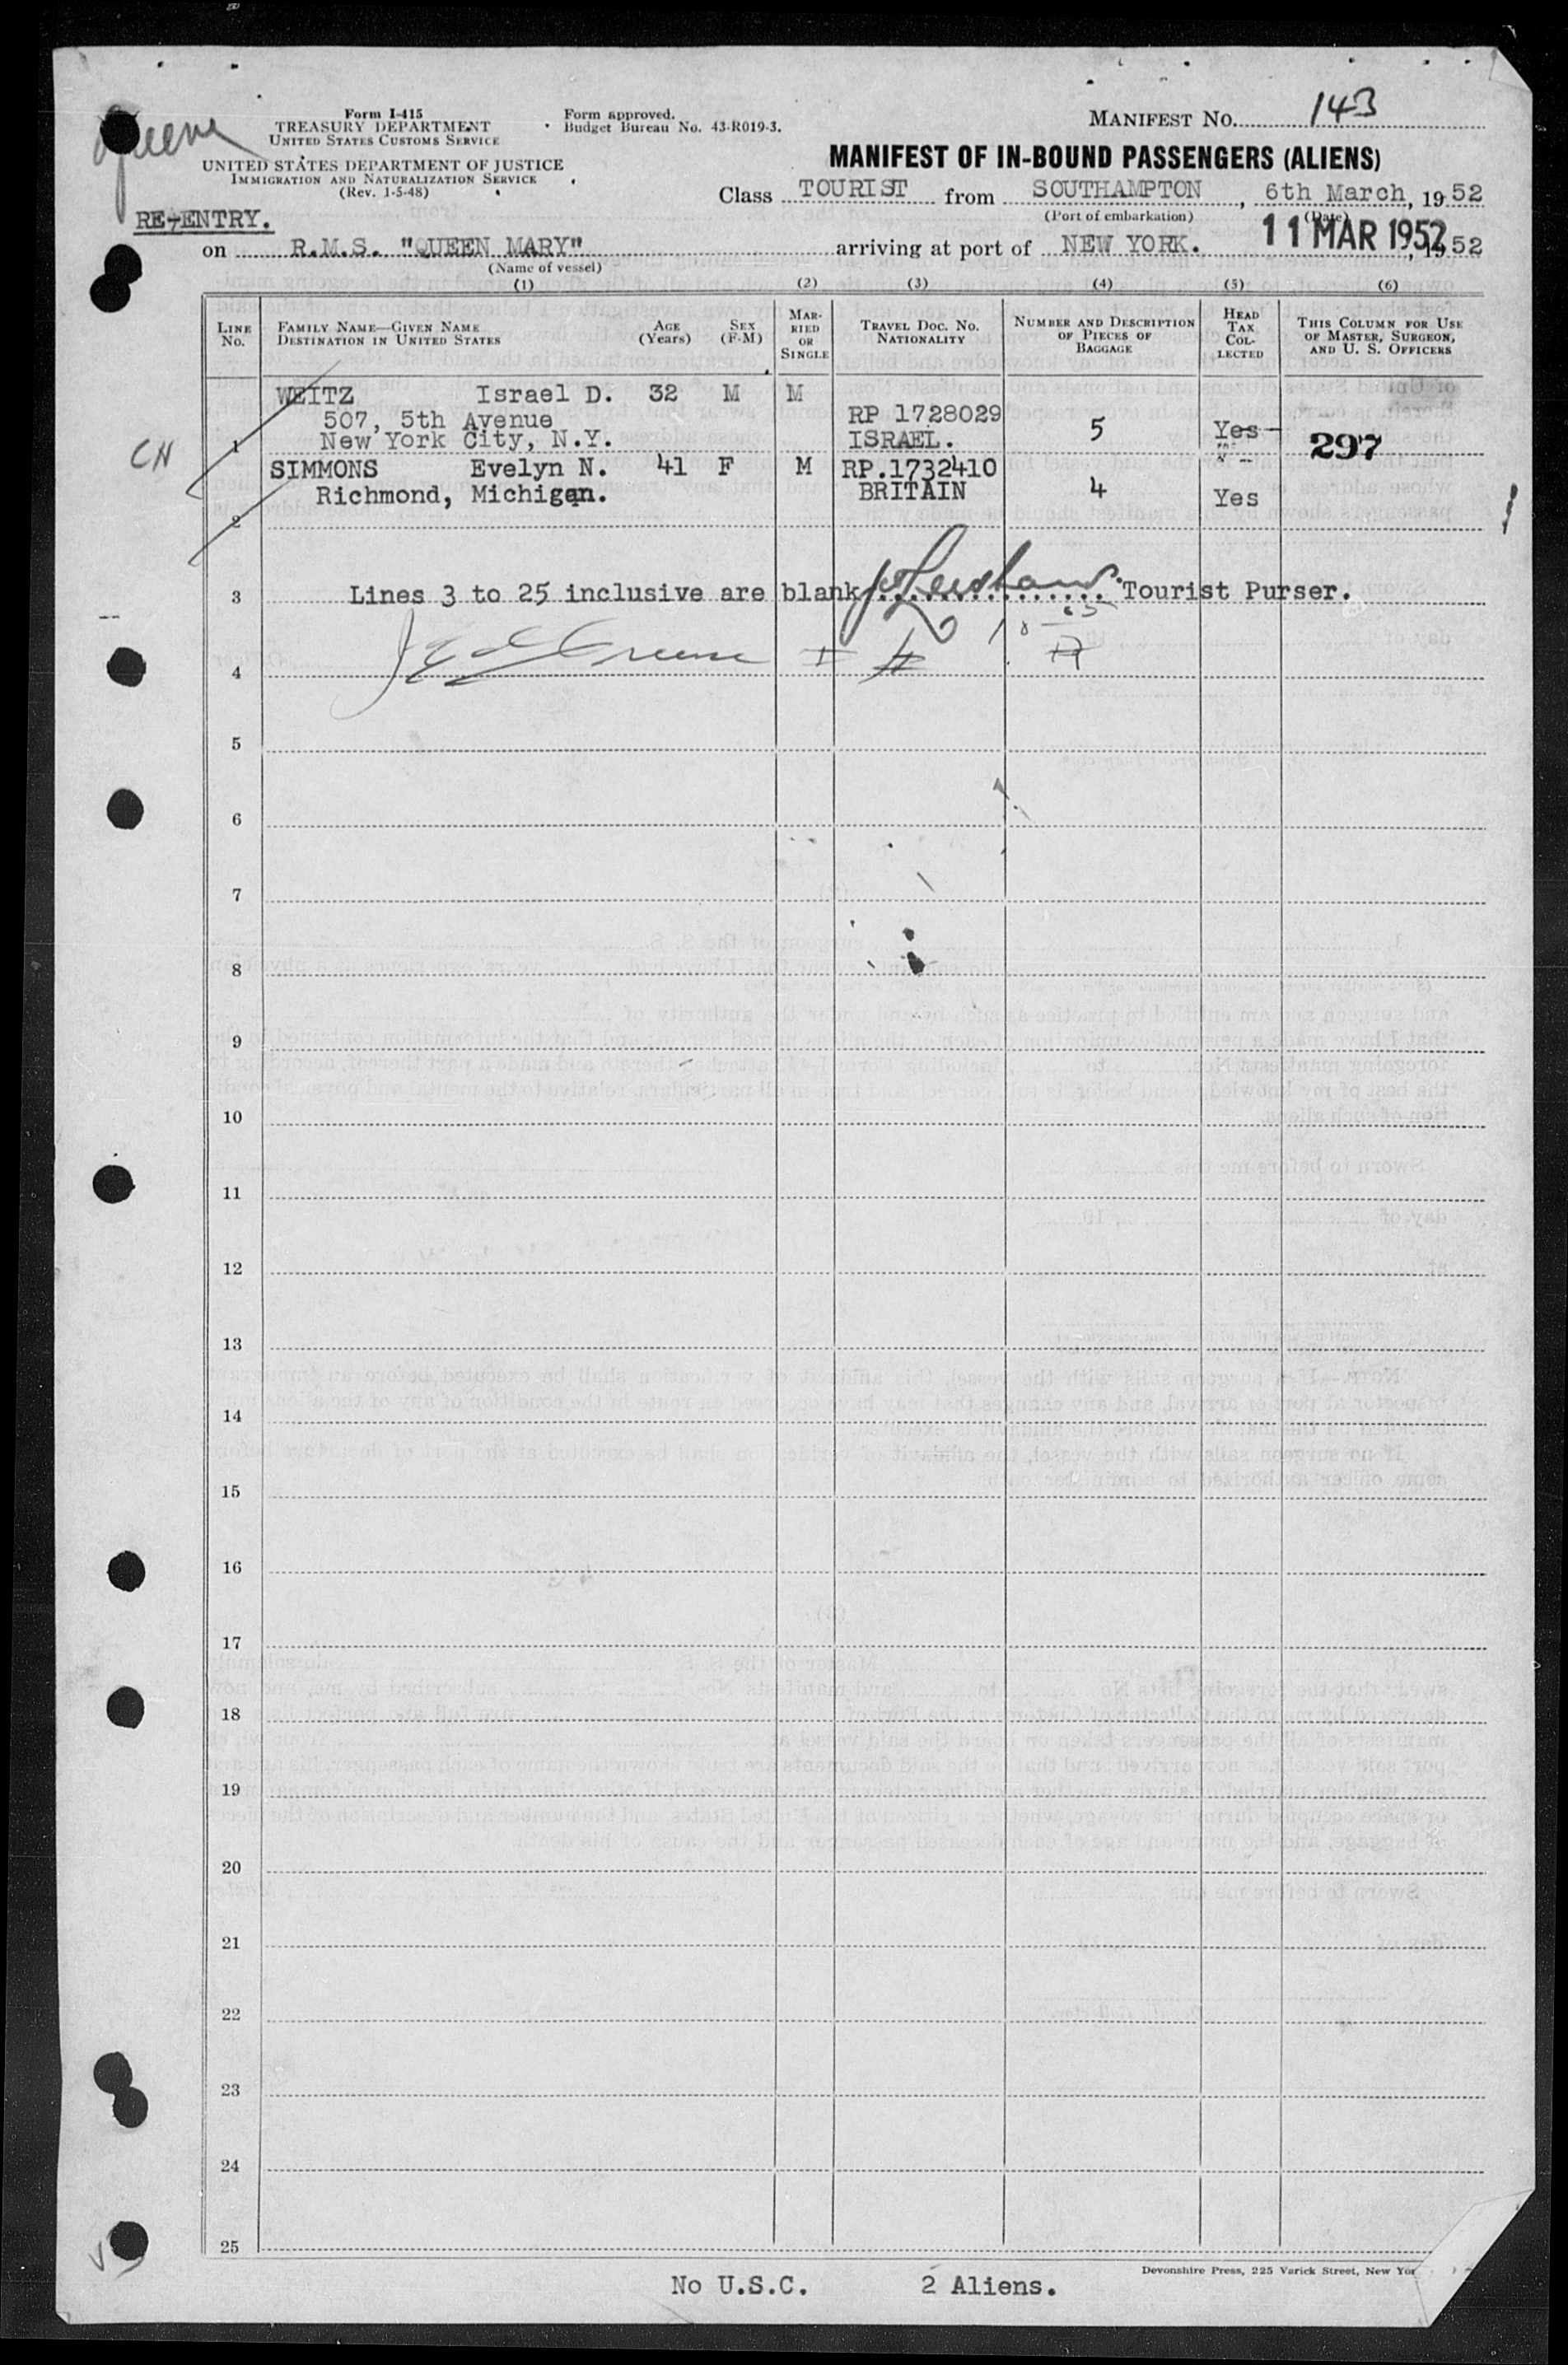 Greene
Form I-415
TREASURY DEPARTMENT
UNITED STATES CUSTOMS SERVICE
UNITED STATES DEPARTMENT OF JUSTICE
IMMIGRATION AND NATURALIZATION SERVICE
(Rev. 1-5-48)
Form approved.
Budget Bureau No. 43-R019-3.
MANIFEST NO. 143
MANIFEST OF IN-BOUND PASSENGERS (ALIENS)
Class TOURIST from SOUTHAMPTON, 6th March, 1952
(Port of embarkation) (Date)
RE-ENTRY.
11 MAR 1952
on R.M.S. "QUEEN MARY" arriving at port of NEW YORK. , 1952
(Name of vessel)
(1) (2) (3) (4) (5) (6)
LINE NO. FAMILY NAME—GIVEN NAME DESTINATION IN UNITED STATES AGE (Years) SEX (F-M) MARRIED OR SINGLE TRAVEL DOC. NO. NATIONALITY NUMBER AND DESCRIPTION OF PIECES OF BAGGAGE HEAD TAX COLLECTED THIS COLUMN FOR USE OF MASTER, SURGEON, AND U. S. OFFICERS
WEITZ Israel D. 32 M M
507, 5th Avenue RP 1728029
CN 1 New York City, N.Y. ISRAEL. 5 Yes 297
SIMMONS Evelyn N. 41 F M RP.1732410
Richmond, Michigan. BRITAIN 4 Yes
2
3 Lines 3 to 25 inclusive are blank Tourist Purser.
4 Greene
5
6
7
8
9
10
11
12
13
14
15
16
17
18
19
20
21
22
23
24
25
Devonshire Press, 225 Varick Street, New
No U.S.C. 2 Aliens.